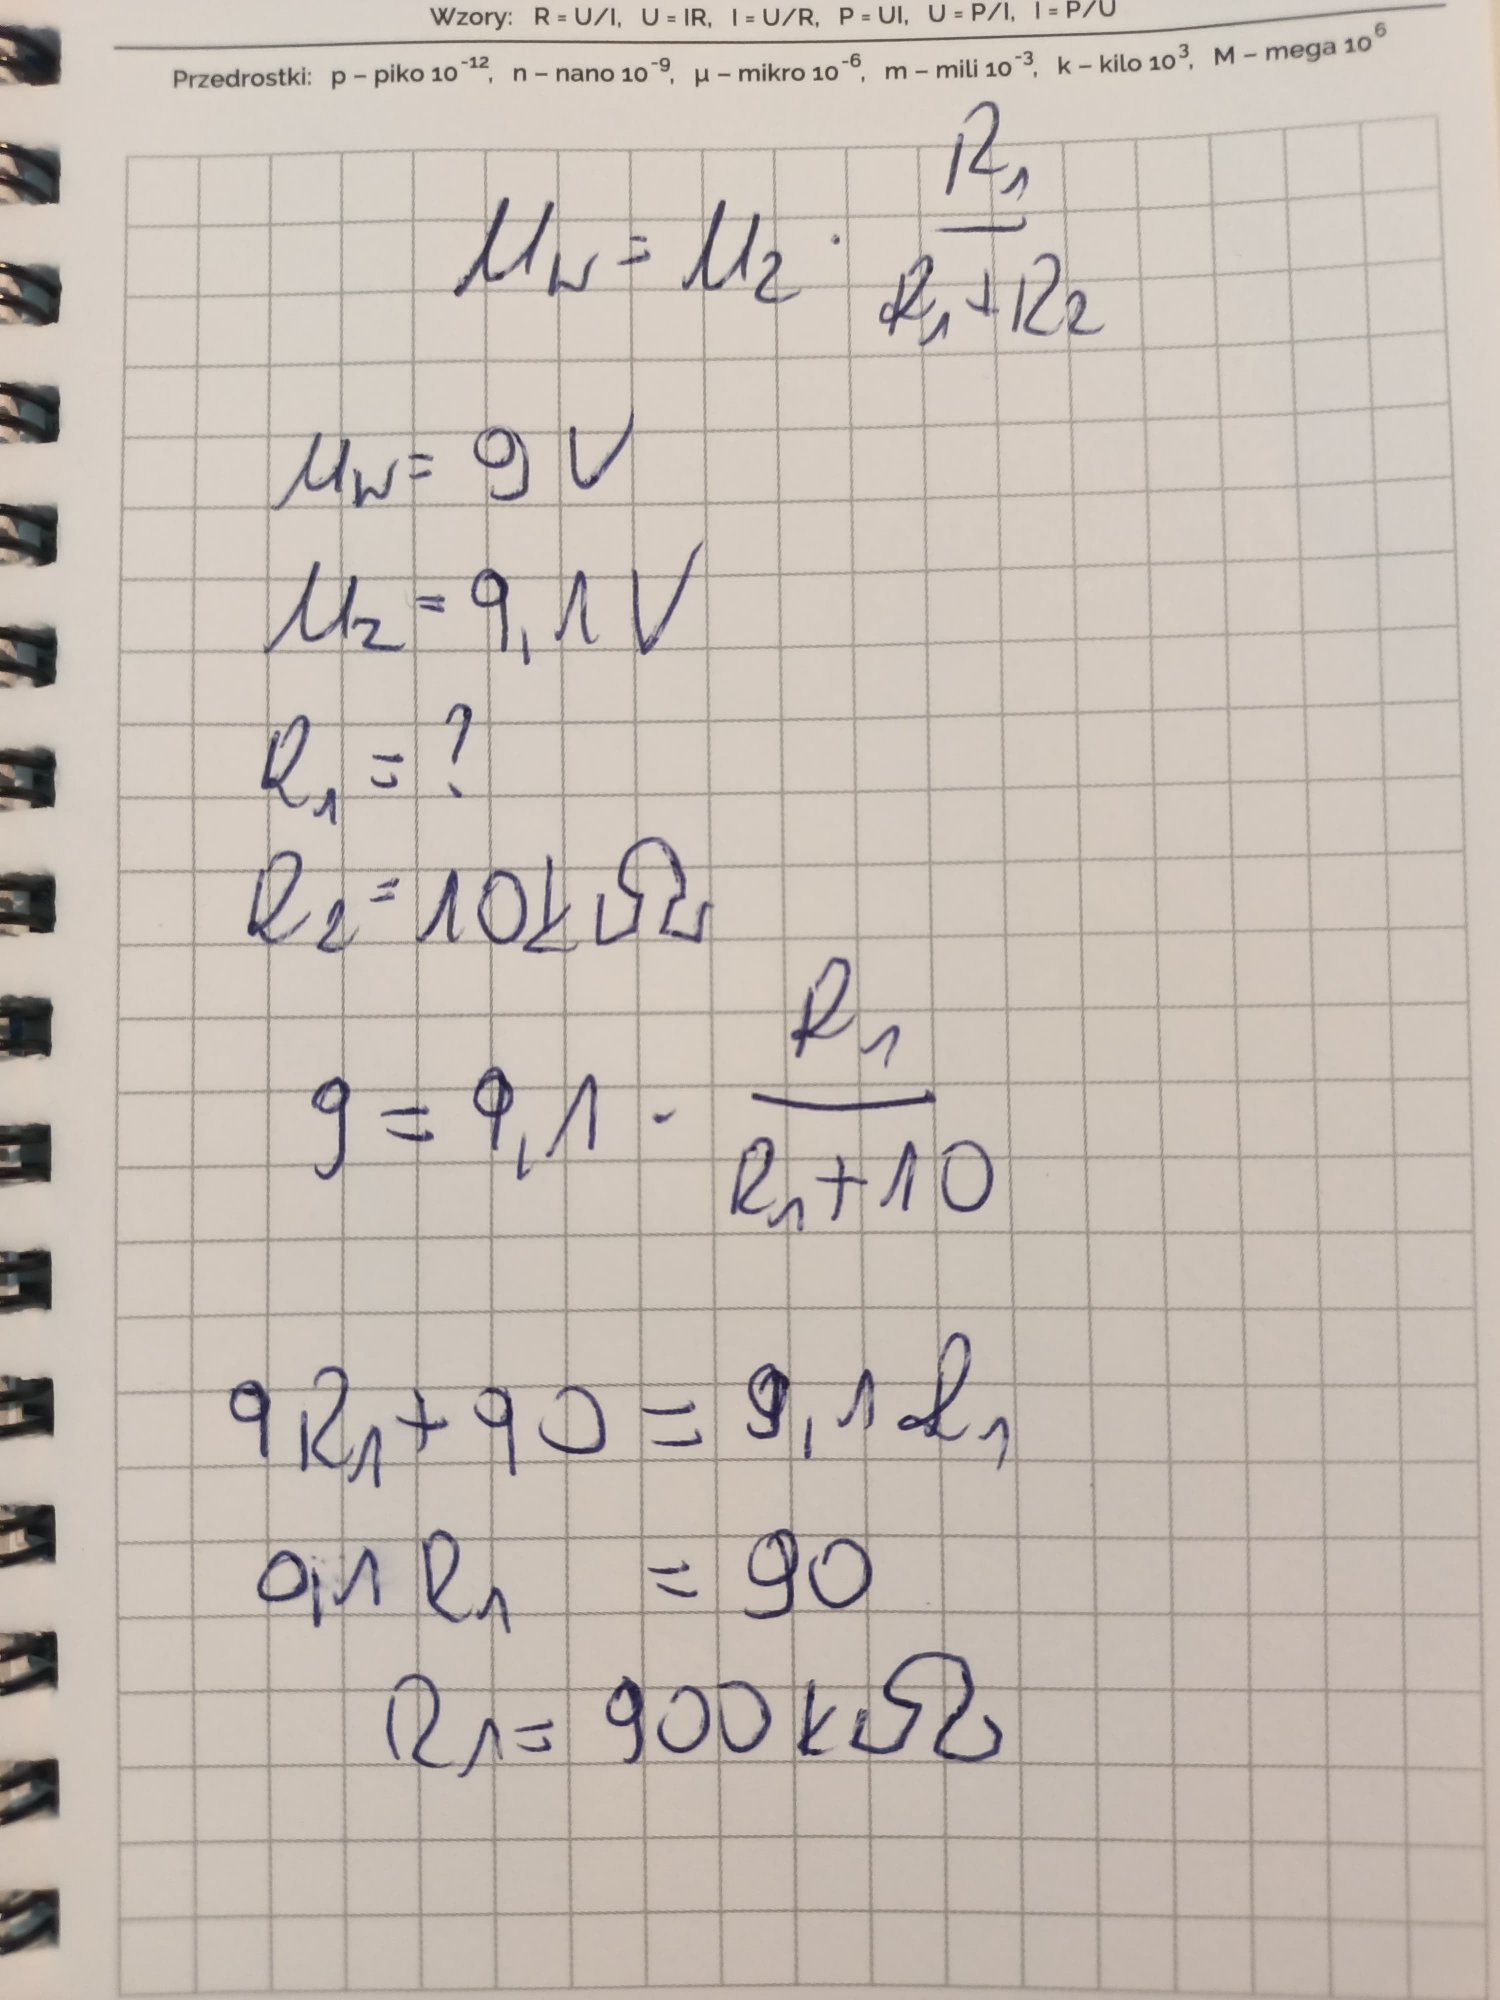 Wzory: R = U/I, U = IR, I = U/R, P = UI, U = P/I, I = P/U
Przedrostki: p – piko 10⁻¹², n – nano 10⁻⁹, µ – mikro 10⁻⁶, m – mili 10⁻³, k – kilo 10³, M – mega 10⁶
U_w = U_z · R₁ / (R₁ + R₂)
U_w = 9 V
U_z = 9,1 V
R₁ = ?
R₂ = 10 kΩ
9 = 9,1 · R₁ / (R₁ + 10)
9R₁ + 90 = 9,1 R₁
0,1 R₁ = 90
R₁ = 900 kΩ